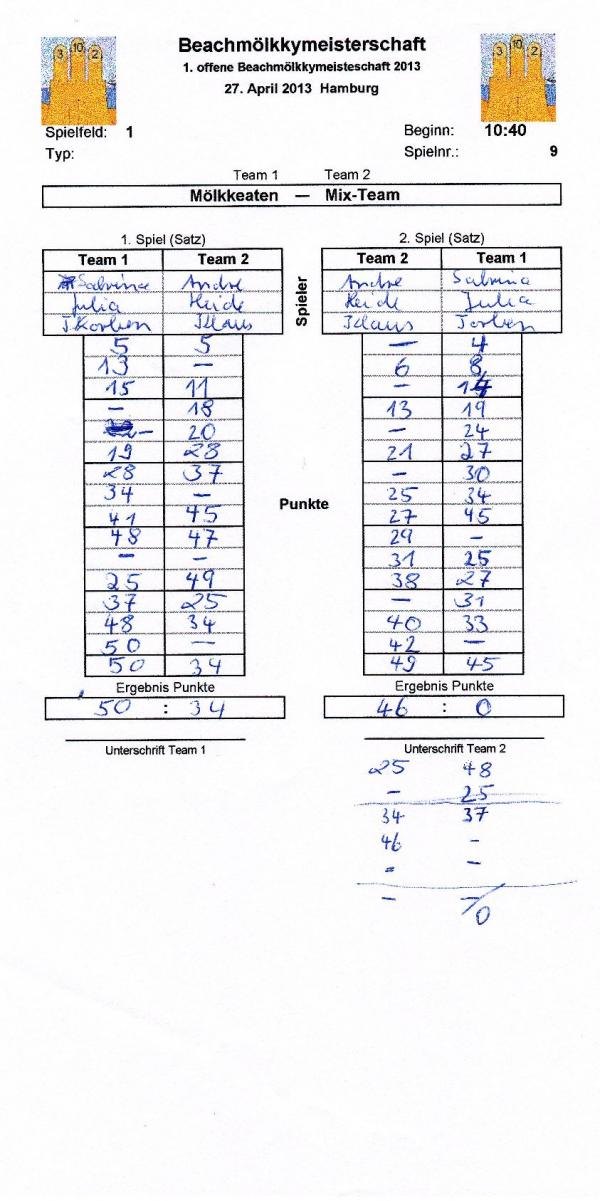 3 10 2
3 10 2
Beachmölkkymeisterschaft
1. offene Beachmölkkymeisteschaft 2013
27. April 2013 Hamburg
Spielfeld: 1 Beginn: 10:40
Typ: Spielnr.: 9
Team 1 Team 2
Mölkkeaten — Mix-Team
1. Spiel (Satz)
Team 1 Team 2
Sabrina Andre
Julia Heide
Torben Klaus
5 5
13 –
15 11
– 18
– 20
19 28
28 37
34 –
41 45
48 47
– –
25 49
37 25
48 34
50 –
50 34
Ergebnis Punkte
50 : 34
Unterschrift Team 1
Spieler
Punkte
2. Spiel (Satz)
Team 2 Team 1
Andre Sabrina
Heide Julia
Klaus Torben
– 4
6 8
– 14
13 19
– 24
21 27
– 30
25 34
27 45
29 –
31 25
38 27
– 31
40 33
42 –
49 45
Ergebnis Punkte
46 : 0
Unterschrift Team 2
25 48
– 25
34 37
46 –
– –
– –/0